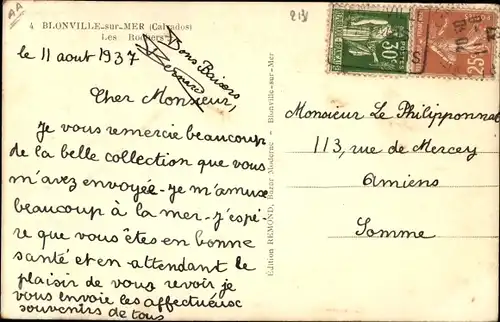 AA
4 BLONVILLE-sur-MER (Calvados)
Les Rochers
213
le 11 aout 1937
Bons Baisers
Bernard
Cher Monsieur,
Je vous remercie beaucoup
de la belle collection que vous
m'avez envoyée - Je m'amuse
beaucoup à la mer - J'espè-
re que vous êtes en bonne
santé et en attendant le
plaisir de vous revoir je
vous envoie les affectueux
souvenirs de tous
Édition REMOND, Bazar Moderne - Blonville-sur-Mer
POSTES
30c
25c
Monsieur Le Philipponnat
113, rue de Mercey
Amiens
Somme